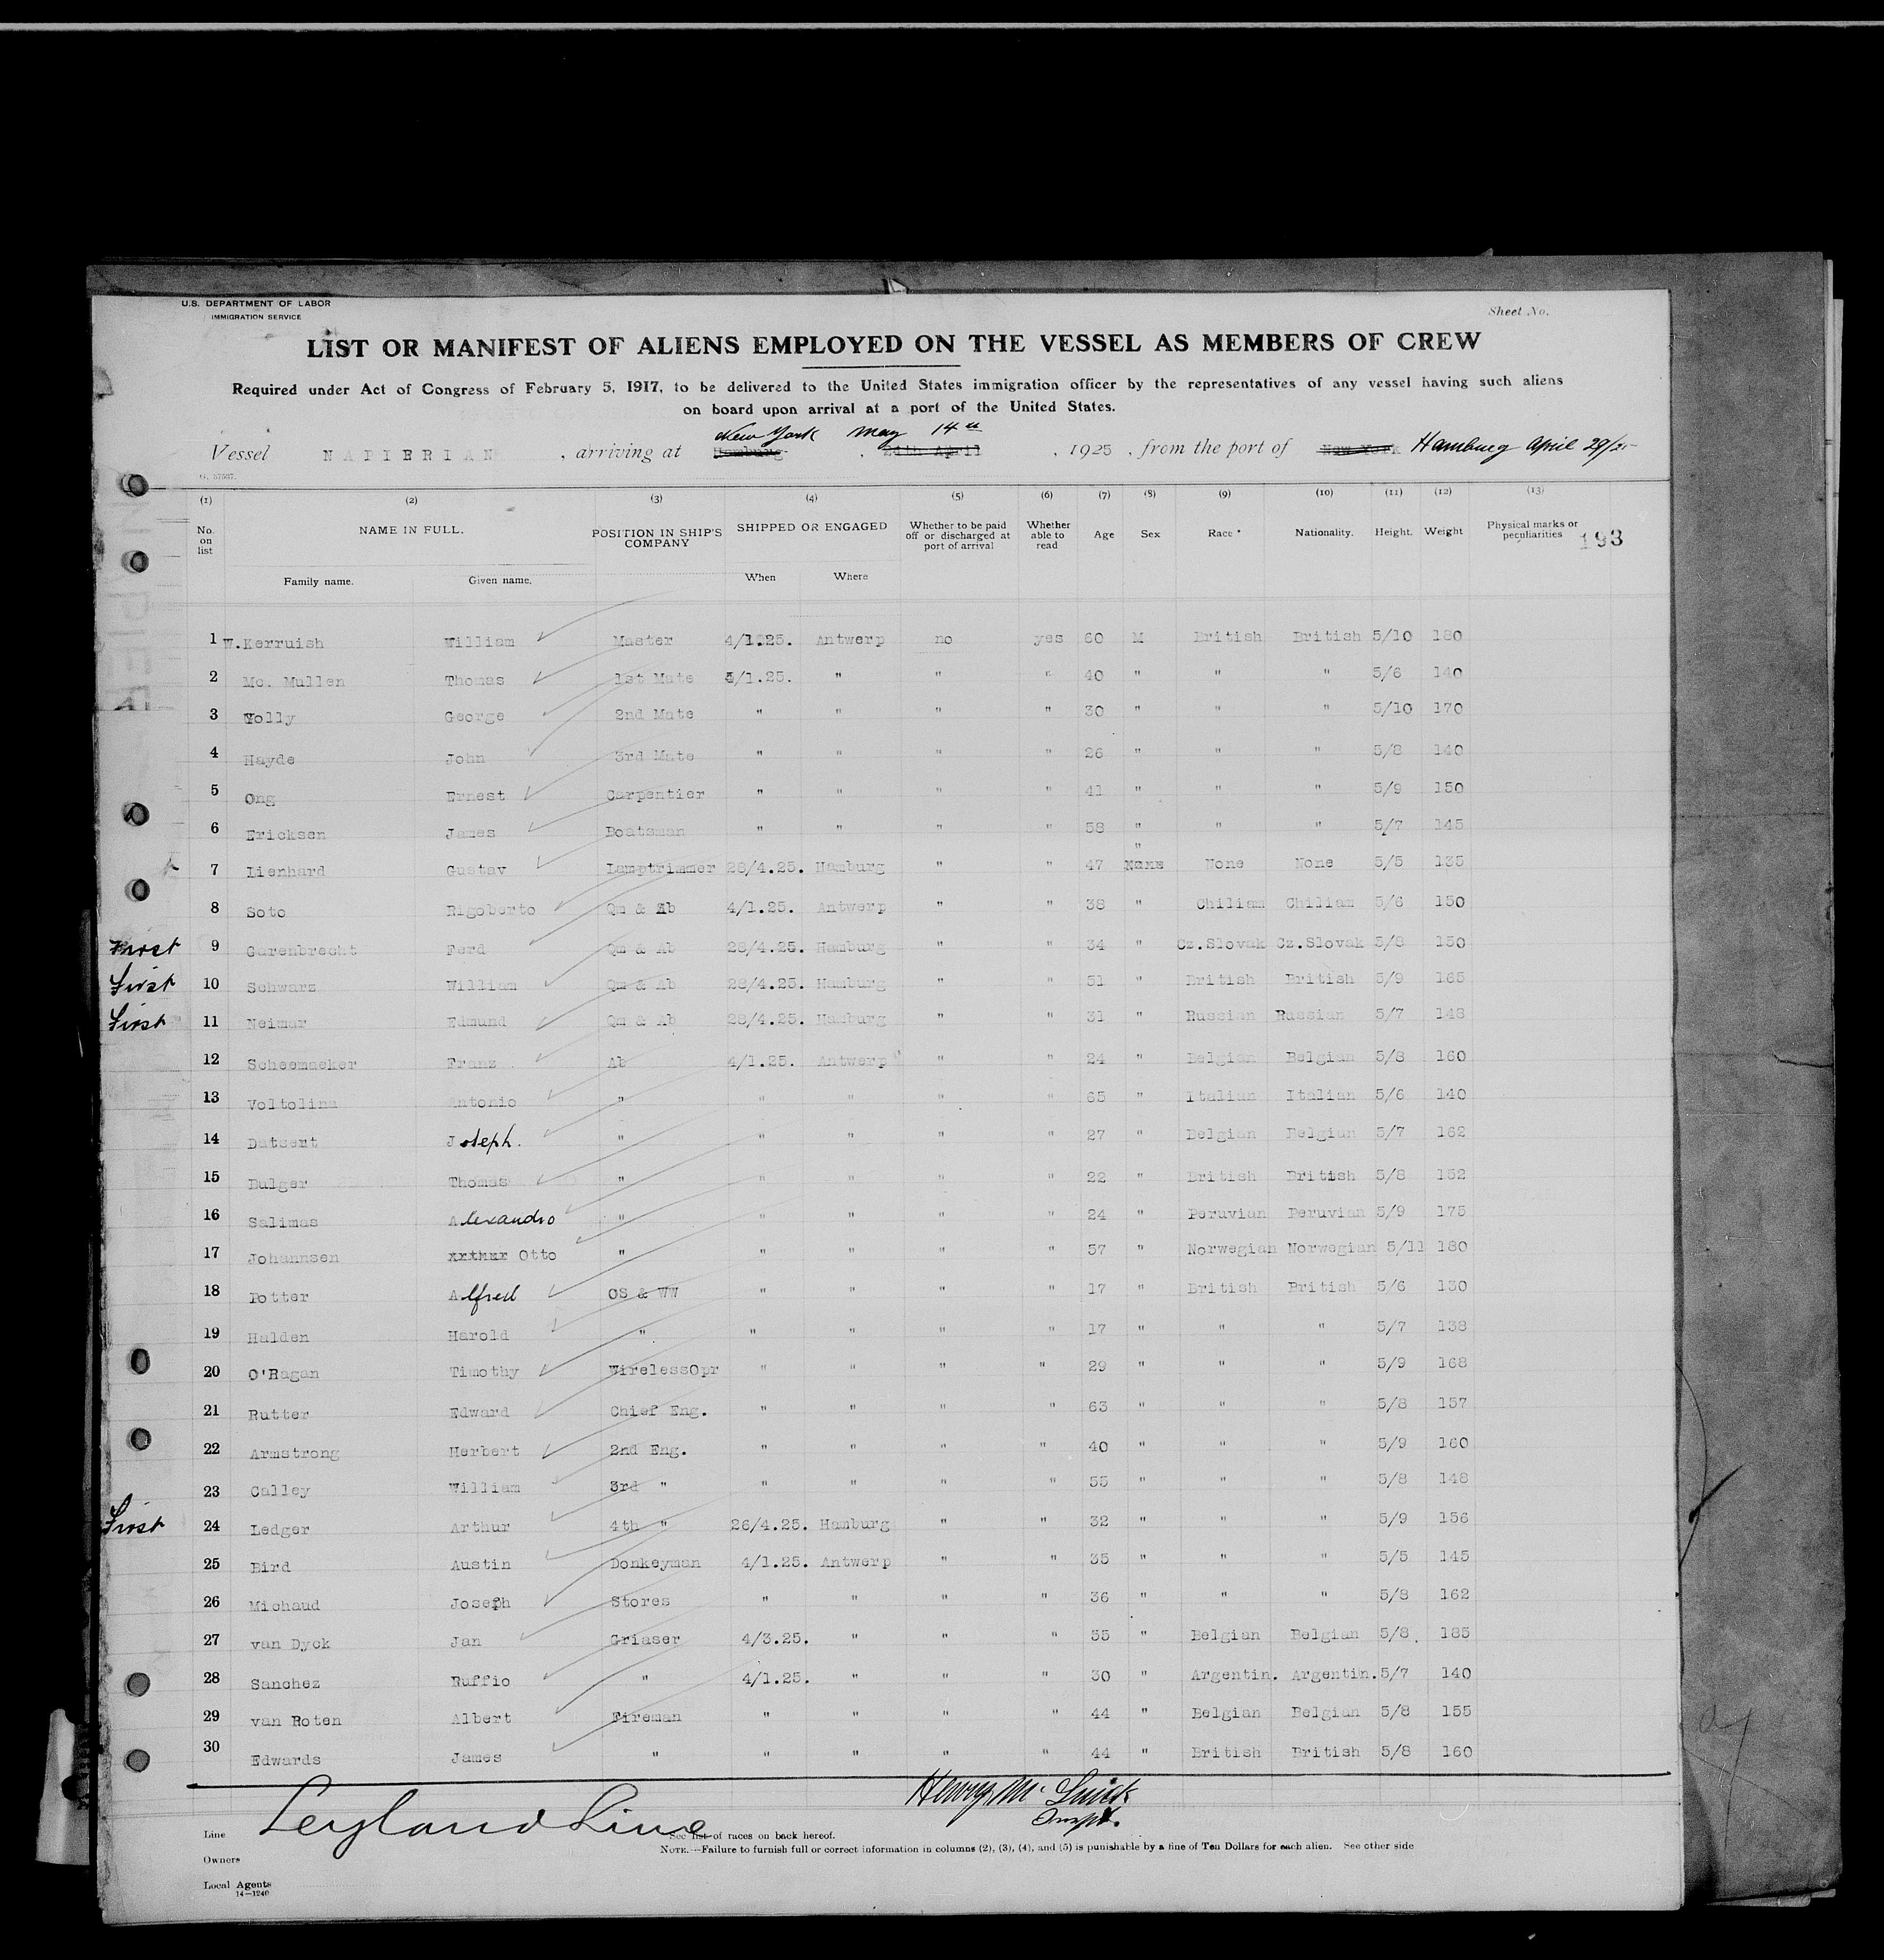 U.S. DEPARTMENT OF LABOR
IMMIGRATION SERVICE
Sheet No.
LIST OR MANIFEST OF ALIENS EMPLOYED ON THE VESSEL AS MEMBERS OF CREW
Required under Act of Congress of February 5, 1917, to be delivered to the United States immigration officer by the representatives of any vessel having such aliens
on board upon arrival at a port of the United States.
New York May 14th
Vessel NAPIERIAN, arriving at Hamburg, 24th April, 1925, from the port of New York Hamburg April 29/25
(1) (2) (3) (4) (5) (6) (7) (8) (9) (10) (11) (12) (13)
No. on list NAME IN FULL. POSITION IN SHIP'S COMPANY SHIPPED OR ENGAGED Whether to be paid off or discharged at port of arrival Whether able to read Age Sex Race * Nationality. Height. Weight Physical marks or peculiarities 193
Family name. Given name. When Where
1 W.Kerruish William Master 4/1.25. Antwerp no yes 60 M British British 5/10 180
2 Mc. Mullen Thomas 1st Mate 5/1.25. " " " 40 " " " 5/6 140
3 Yolly George 2nd Mate " " " " 30 " " " 5/10 170
4 Hayde John 3rd Mate " " " " 26 " " " 5/8 140
5 Ong Ernest Carpentier " " " " 41 " " " 5/9 150
6 Ericksen James Boatsman " " " " 58 " " " 5/7 145
7 Lienhard Gustav Lamptrimmer 28/4.25. Hamburg " " 47 " None None 5/5 135
8 Soto Rigoberto Qm & Ab 4/1.25. Antwerp " " 38 " Chiliam Chiliam 5/6 150
First 9 Garenbrecht Ferd Qm & Ab 28/4.25. Hamburg " " 34 " Cz.Slovak Cz.Slovak 5/8 150
First 10 Schwarz William Qm & Ab 28/4.25. Hamburg " " 51 " British British 5/9 165
First 11 Neimar Edmund Qm & Ab 28/4.25. Hamburg " " 31 " Russian Russian 5/7 148
12 Scheemaeker Franz Ab 4/1.25. Antwerp " " 24 " Belgian Belgian 5/8 160
13 Voltolina Antonio " " " " " 65 " Italian Italian 5/6 140
14 Datsent Joseph. " " " " " 27 " Belgian Belgian 5/7 162
15 Bulger Thomas " " " " " 22 " British British 5/8 152
16 Salimas Alexandro " " " " " 24 " Peruvian Peruvian 5/9 175
17 Johannsen Arthur Otto " " " " " 57 " Norwegian Norwegian 5/11 180
18 Potter Alfred OS & WW " " " " 17 " British British 5/6 130
19 Halden Harold " " " " " 17 " " " 5/7 138
20 O'Ragan Timothy WirelessOpr " " " " 29 " " " 5/9 168
21 Rutter Edward Chief Eng. " " " " 63 " " " 5/8 157
22 Armstrong Herbert 2nd Eng. " " " " 40 " " " 5/9 160
23 Calley William 3rd " " " " " 55 " " " 5/8 148
First 24 Ledger Arthur 4th " 26/4.25. Hamburg " " 32 " " " 5/9 156
25 Bird Austin Donkeyman 4/1.25. Antwerp " " 35 " " " 5/5 145
26 Michaud Joseph Stores " " " " 36 " " " 5/8 162
27 van Dyck Jan Griaser 4/3.25. " " " 35 " Belgian Belgian 5/8. 185
28 Sanchez Ruffio " 4/1.25. " " " 30 " Argentin. Argentin. 5/7 140
29 van Roten Albert Fireman " " " " 44 " Belgian Belgian 5/8 155
30 Edwards James " " " " " 44 " British British 5/8 160
Line Leyland Line
Henry M.
Inspt.
See list of races on back hereof.
Owners
NOTE.—Failure to furnish full or correct information in columns (2), (3), (4), and (5) is punishable by a fine of Ten Dollars for each alien. See other side
Local Agents
14—1240